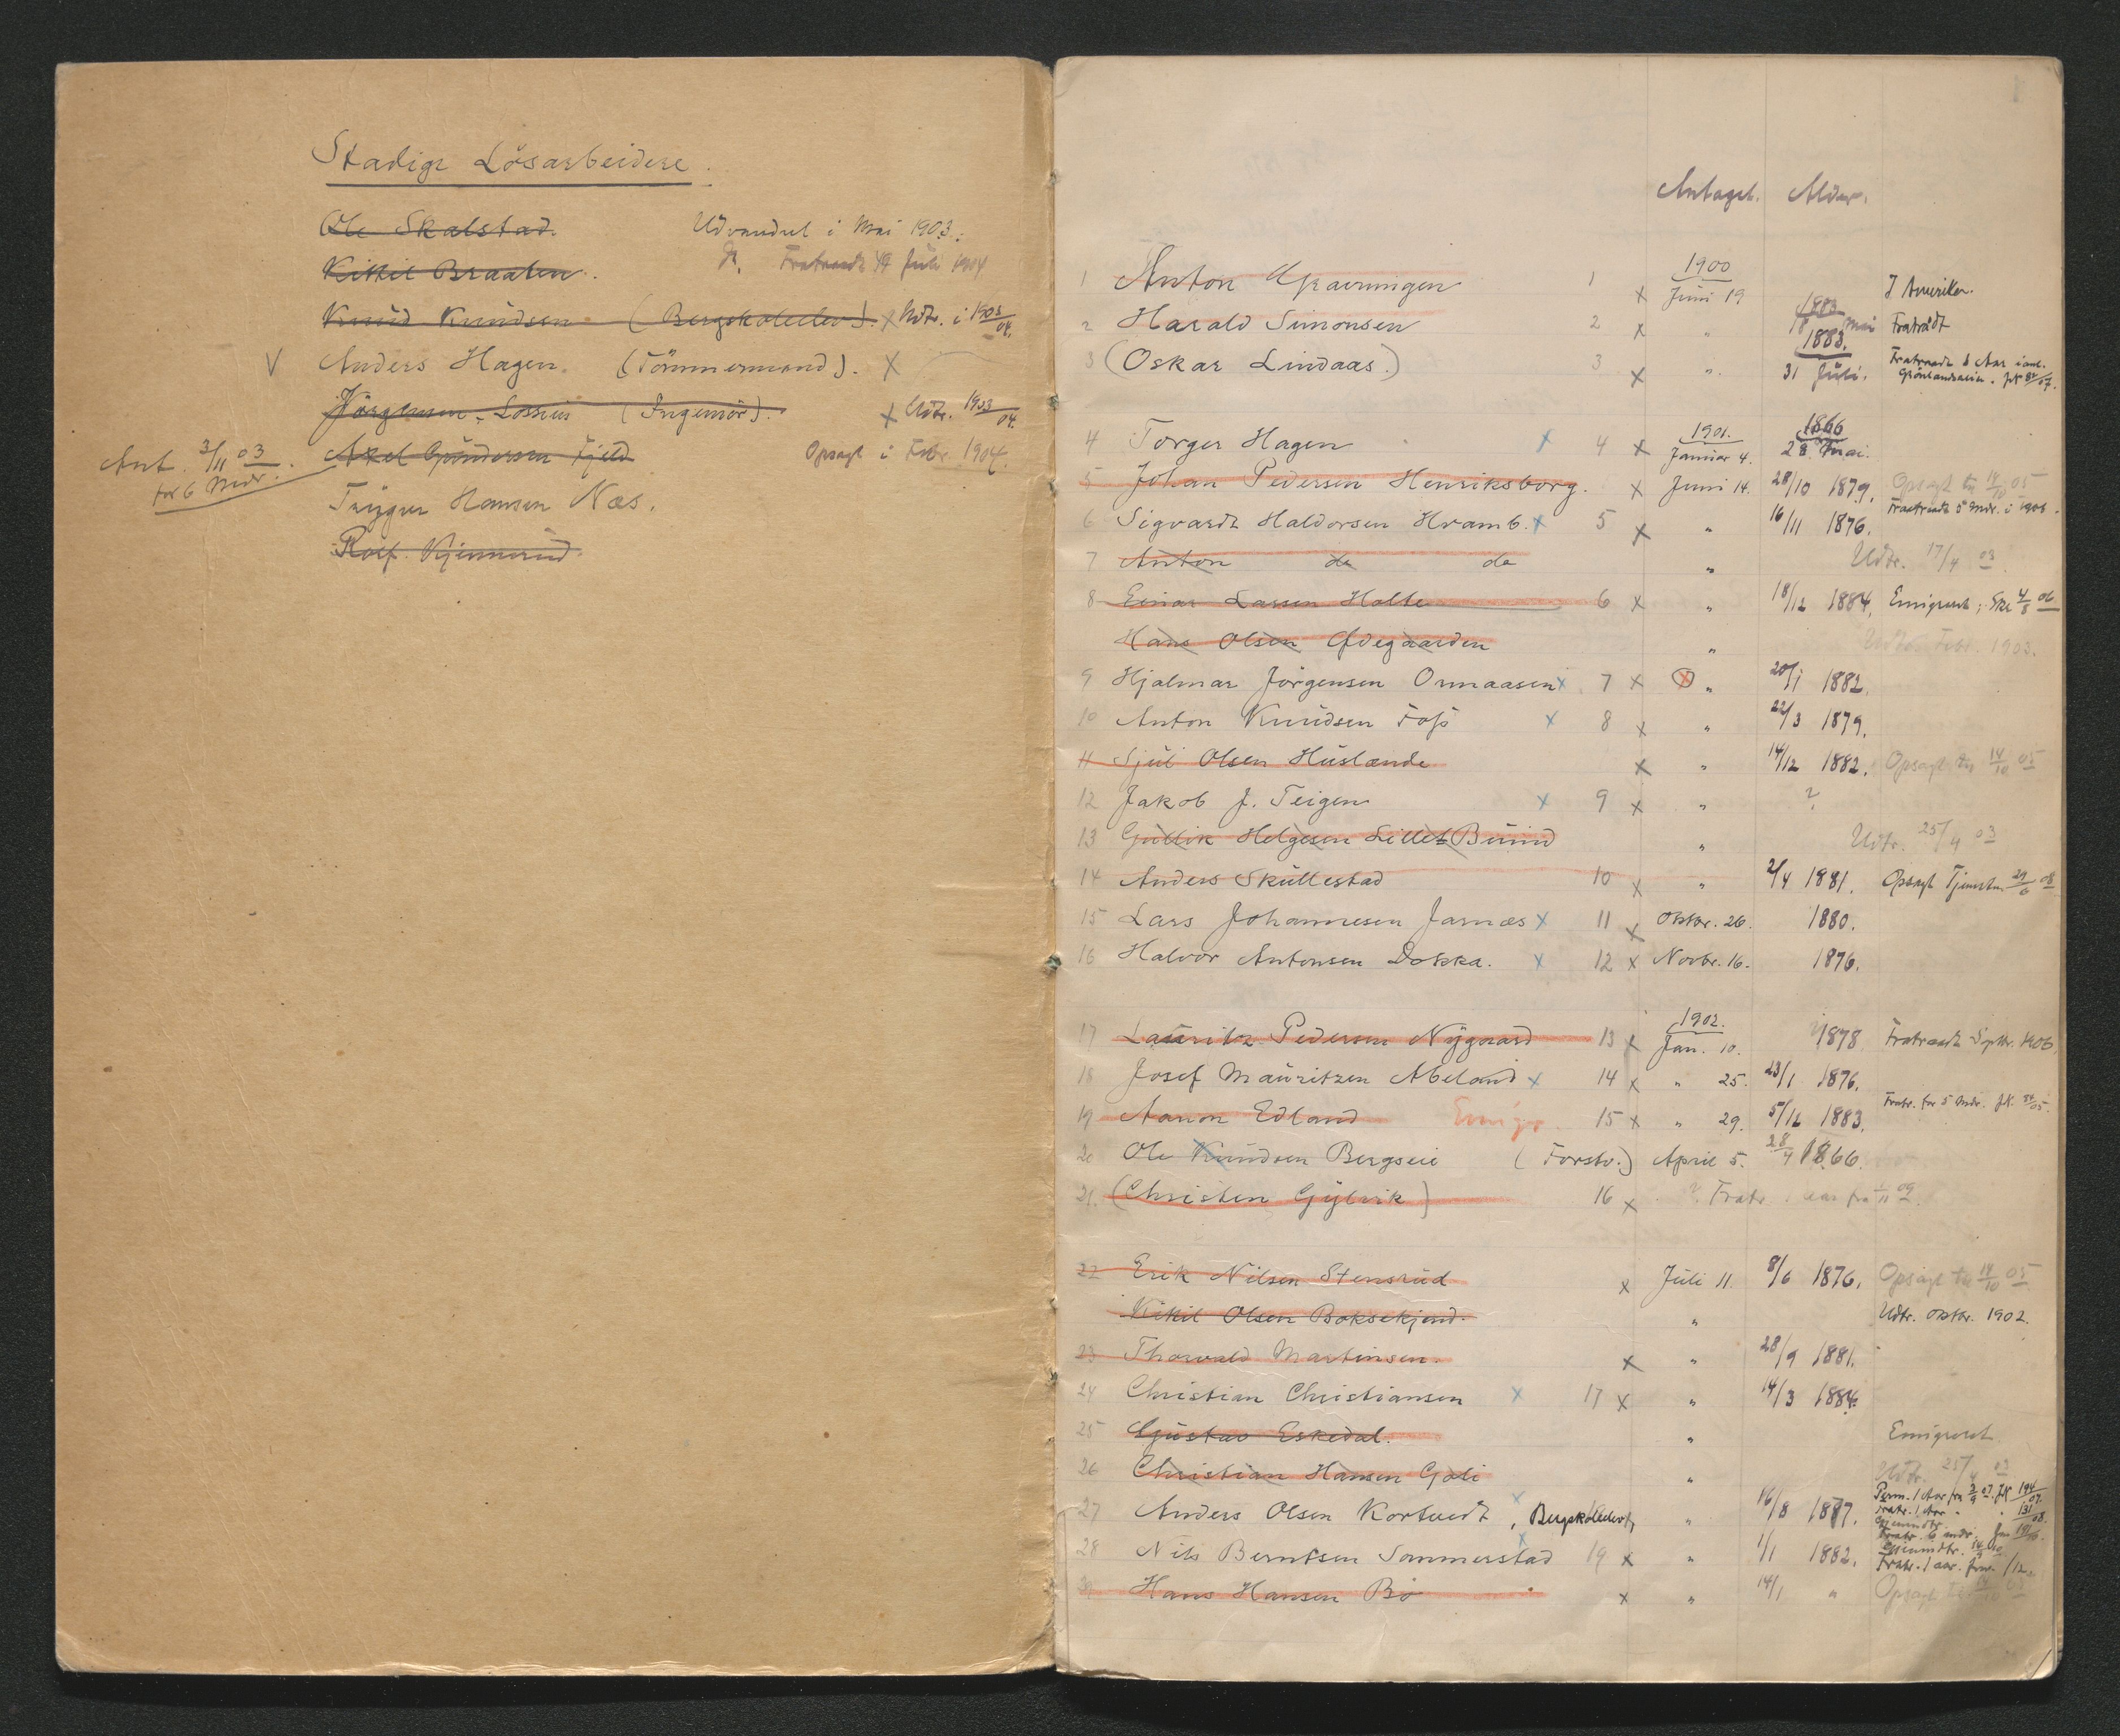 Stadige Lösarbeidere.
Ole Skalstad. Udvandret i Mai 1903.
Kittil Braaten. Fratraadt Juli 1904
Knud Knudsen (Bergskoleelev). x Udtr. i 1903/04.
V Anders Hagen. (Tömmermand). x
Jörgensen Lossius (Ingeniör). x Udtr. 1903/04.
Ant. 3/11 03 for 6 Mdr. Aksel Gundersen Fjeld Opsagt i Febr. 1904.
Trygve Hansen Næs.
Rolf Kjennerud.
Antaget. Alder.
1900
1 Anton Graverningen 1 x Juni 19 I Amerika.
1883
2 Harald Simonsen 2 x " 18 Mai Fratrådt
1883.
3 (Oskar Lindaas.) 3 x " 31 Juli. Fratraadt 1 Aar
1901. 1866
4 Torger Hagen x 4 x Januar 4. 28 Mai.
5 Johan Pedersen Henriksborg. x Juni 14. 28/10 1879. Opsagt til 14/10 05
6 Sigvardt Haldorsen Hvamb. x 5 x " 16/11 1876. Fratraadt 5 Mdr. i 1906.
7 Anton do do " Udtr. 17/4 03
8 Einar Larsen Holte 6 x " 18/12 1884. Emigreret; 4/8 06
Hans Olsen Ødegaarden " Febr. 1903.
9 Hjalmar Jörgensen Ormaasen x 7 x x " 20/1 1882.
10 Anton Knudsen Foss x 8 x " 22/3 1879.
11 Sjul Olsen Huslænde x " 14/12 1882. Opsagt til 14/10 05
12 Jakob J. Teigen x 9 x " ?
13 Gullik Helgesen Lillet Buind " Udtr. 25/4 03
14 Anders Skullestad 10 x " 2/4 1881. Opsagt Tjenesten 29/6 08
15 Lars Johannesen Jarnæs x 11 x Oktbr. 26. 1880.
16 Halvor Antonsen Dokka. x 12 x Novbr. 16. 1876.
1902.
17 Lauritz Pedersen Nygaard 13 x Jan. 10. 1878 Fratraadt Septbr. 1906.
18 Josef Mauritzen Abeland x 14 x " 25. 23/1 1876.
19 Aanon Edland Emigr. 15 x " 29. 5/12 1883. Fratr. for 5 Mdr.
20 Ole Knudsen Bergseie (Forstv.) April 5. 28/4 1866.
21. (Christen Gylvik) 16 x ? Fratr. aar fra 09.
22 Erik Nilsen Stensrud x Juli 11. 8/6 1876. Opsagt til 14/10 05
Kittil Olsen Boksekjend. " Udtr. Oktbr. 1902.
23 Thorvald Martinsen. x " 28/9 1881.
24 Christian Christiansen x 17 x " 14/3 1884.
25 Gustav Eskedal. " Emigreret
26 Christian Hansen Gali " Udtr. 25/4 03
27 Anders Olsen Kortvedt, x Bergskoleelev " 16/8 1887. Perm. 1 Aar fra
28 Nils Berntsen Sommerstad x 19 x " 1/1 1882. Fratr. 1 aar
29 Hans Hansen Bö x " 14/1 " Opsagt til 14/10 05